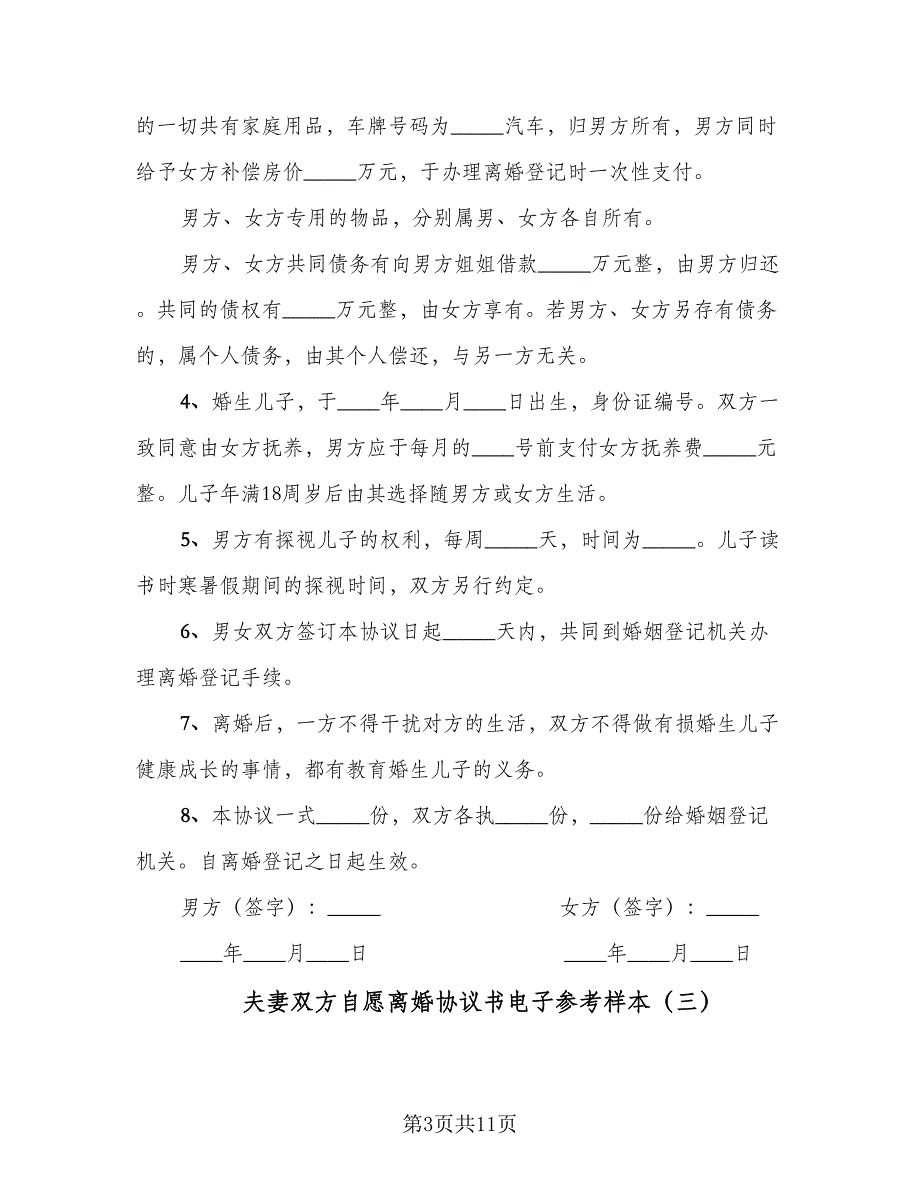 的一切共有家庭用品，车牌号码为_____汽车，归男方所有，男方同时
给予女方补偿房价_____万元，于办理离婚登记时一次性支付。
男方、女方专用的物品，分别属男、女方各自所有。
男方、女方共同债务有向男方姐姐借款_____万元整，由男方归还
。共同的债权有_____万元整，由女方享有。若男方、女方另存有债务
的，属个人债务，由其个人偿还，与另一方无关。
4、婚生儿子，于____年____月____日出生，身份证编号。双方一
致同意由女方抚养，男方应于每月的____号前支付女方抚养费_____元
整。儿子年满18周岁后由其选择随男方或女方生活。
5、男方有探视儿子的权利，每周_____天，时间为_____。儿子读
书时寒暑假期间的探视时间，双方另行约定。
6、男女双方签订本协议日起_____天内，共同到婚姻登记机关办
理离婚登记手续。
7、离婚后，一方不得干扰对方的生活，双方不得做有损婚生儿子
健康成长的事情，都有教育婚生儿子的义务。
8、本协议一式_____份，双方各执_____份，_____份给婚姻登记
机关。自离婚登记之日起生效。
男方（签字）：_____ 女方（签字）：_____
____年____月____日 ____年____月____日
夫妻双方自愿离婚协议书电子参考样本（三）
第3页共11页